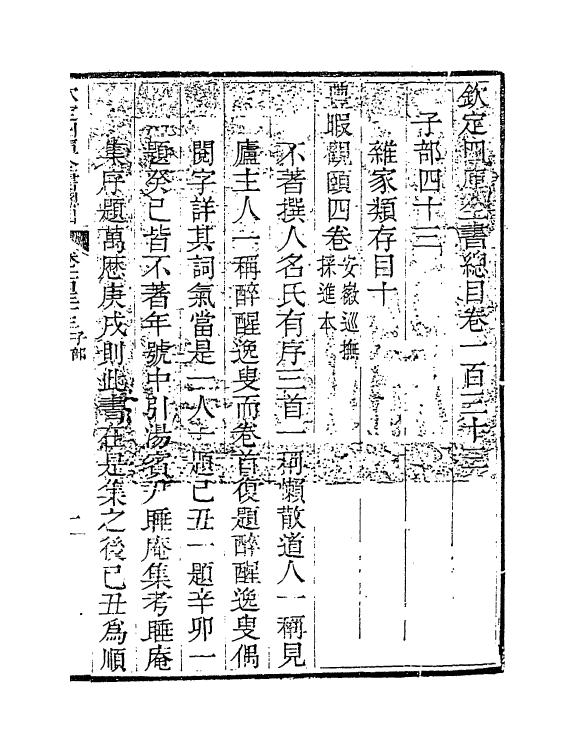 欽定四庫全書總目卷一百三十三
子部四十三
雜家類存目十
豐暇觀頤四卷安徽巡撫
採進本
不著撰人名氏有序三首一稱懶散道人一稱見
廬主人一稱醉醒逸叟而卷首復題醉醒逸叟偶
閱字詳其詞氣當是一人一題己丑一題辛卯一
題癸巳皆不著年號中引湯賓尹睡庵集考睡庵
集序題萬歷庚戌則此書在是集之後己丑為順
欽定四庫全書總目
卷一百三十三 子部
一